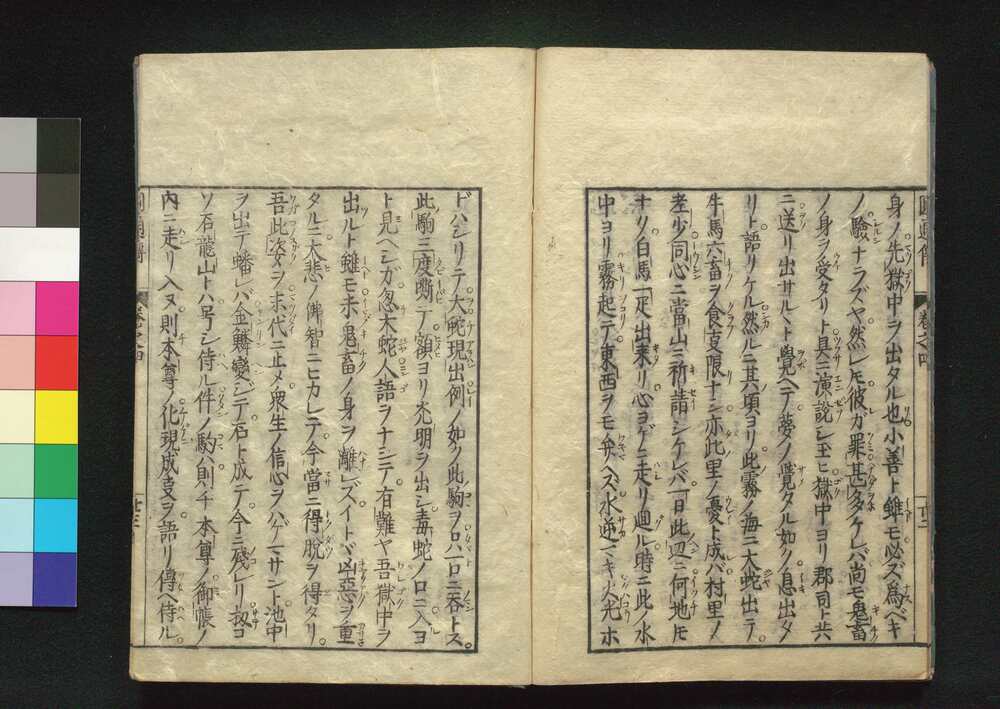 身ノ先獄中ヲ出タル也小善ト雖モ必ズ爲ベキ
ノ驗ナラズヤ然レモ彼ガ罪甚タケレバ尚モ鬼畜
ノ身ヲ受タリト具ニ演説シ玉ヒ獄中ヨリ郡司ト共
ニ送リ出サルヽト覺ヘテ夢ノ覺タル如ク息出タ
リト語リケル然ルニ其頃ヨリ此霧ノ海ニ大蛇出テ
牛馬六畜ヲ食支限ナシ亦此里ノ憂ト成バ村里ノ
老少同心ニ當山ニ祈請シケレバ一日此辺ニ何地トモ
ナク白馬一疋出来リ心ヨゲニ走リ廻ル時ニ此ノ水
中ヨリ霧起テ東西ヲモ弁ヘズ水逆マキ火光ホ
ドハシリテ大蛇現出例ノ如ク此駒ヲ口ハ口ニ呑トス
此駒三度嘶テ額ヨリ光明ヲ出シ毒蛇ノ口ニ入ヨ
ト見ヘシガ忽大蛇人語ヲナシテ有難ヤ吾獄中ヲ
出ルト雖モ未鬼畜ノ身ヲ離レズイトヾ凶惡ヲ重
タルニ大悲ノ佛智ニヒカレテ今當ニ得脱ヲ得タリ
吾此姿ヲ末代ニ止メ衆生ノ信心ヲハゲマサント池中
ヲ出テ蟠レバ金鱗變ジテ石ト成テ今ニ殘レリ扨コ
ソ石龍山トハ号シ侍ル件ノ駒ハ則チ本尊ノ御帳ノ
内ニ走リ入又則本尊ノ化現成支ヲ語リ傳ヘ侍ル
卷之四
廿二
廿三